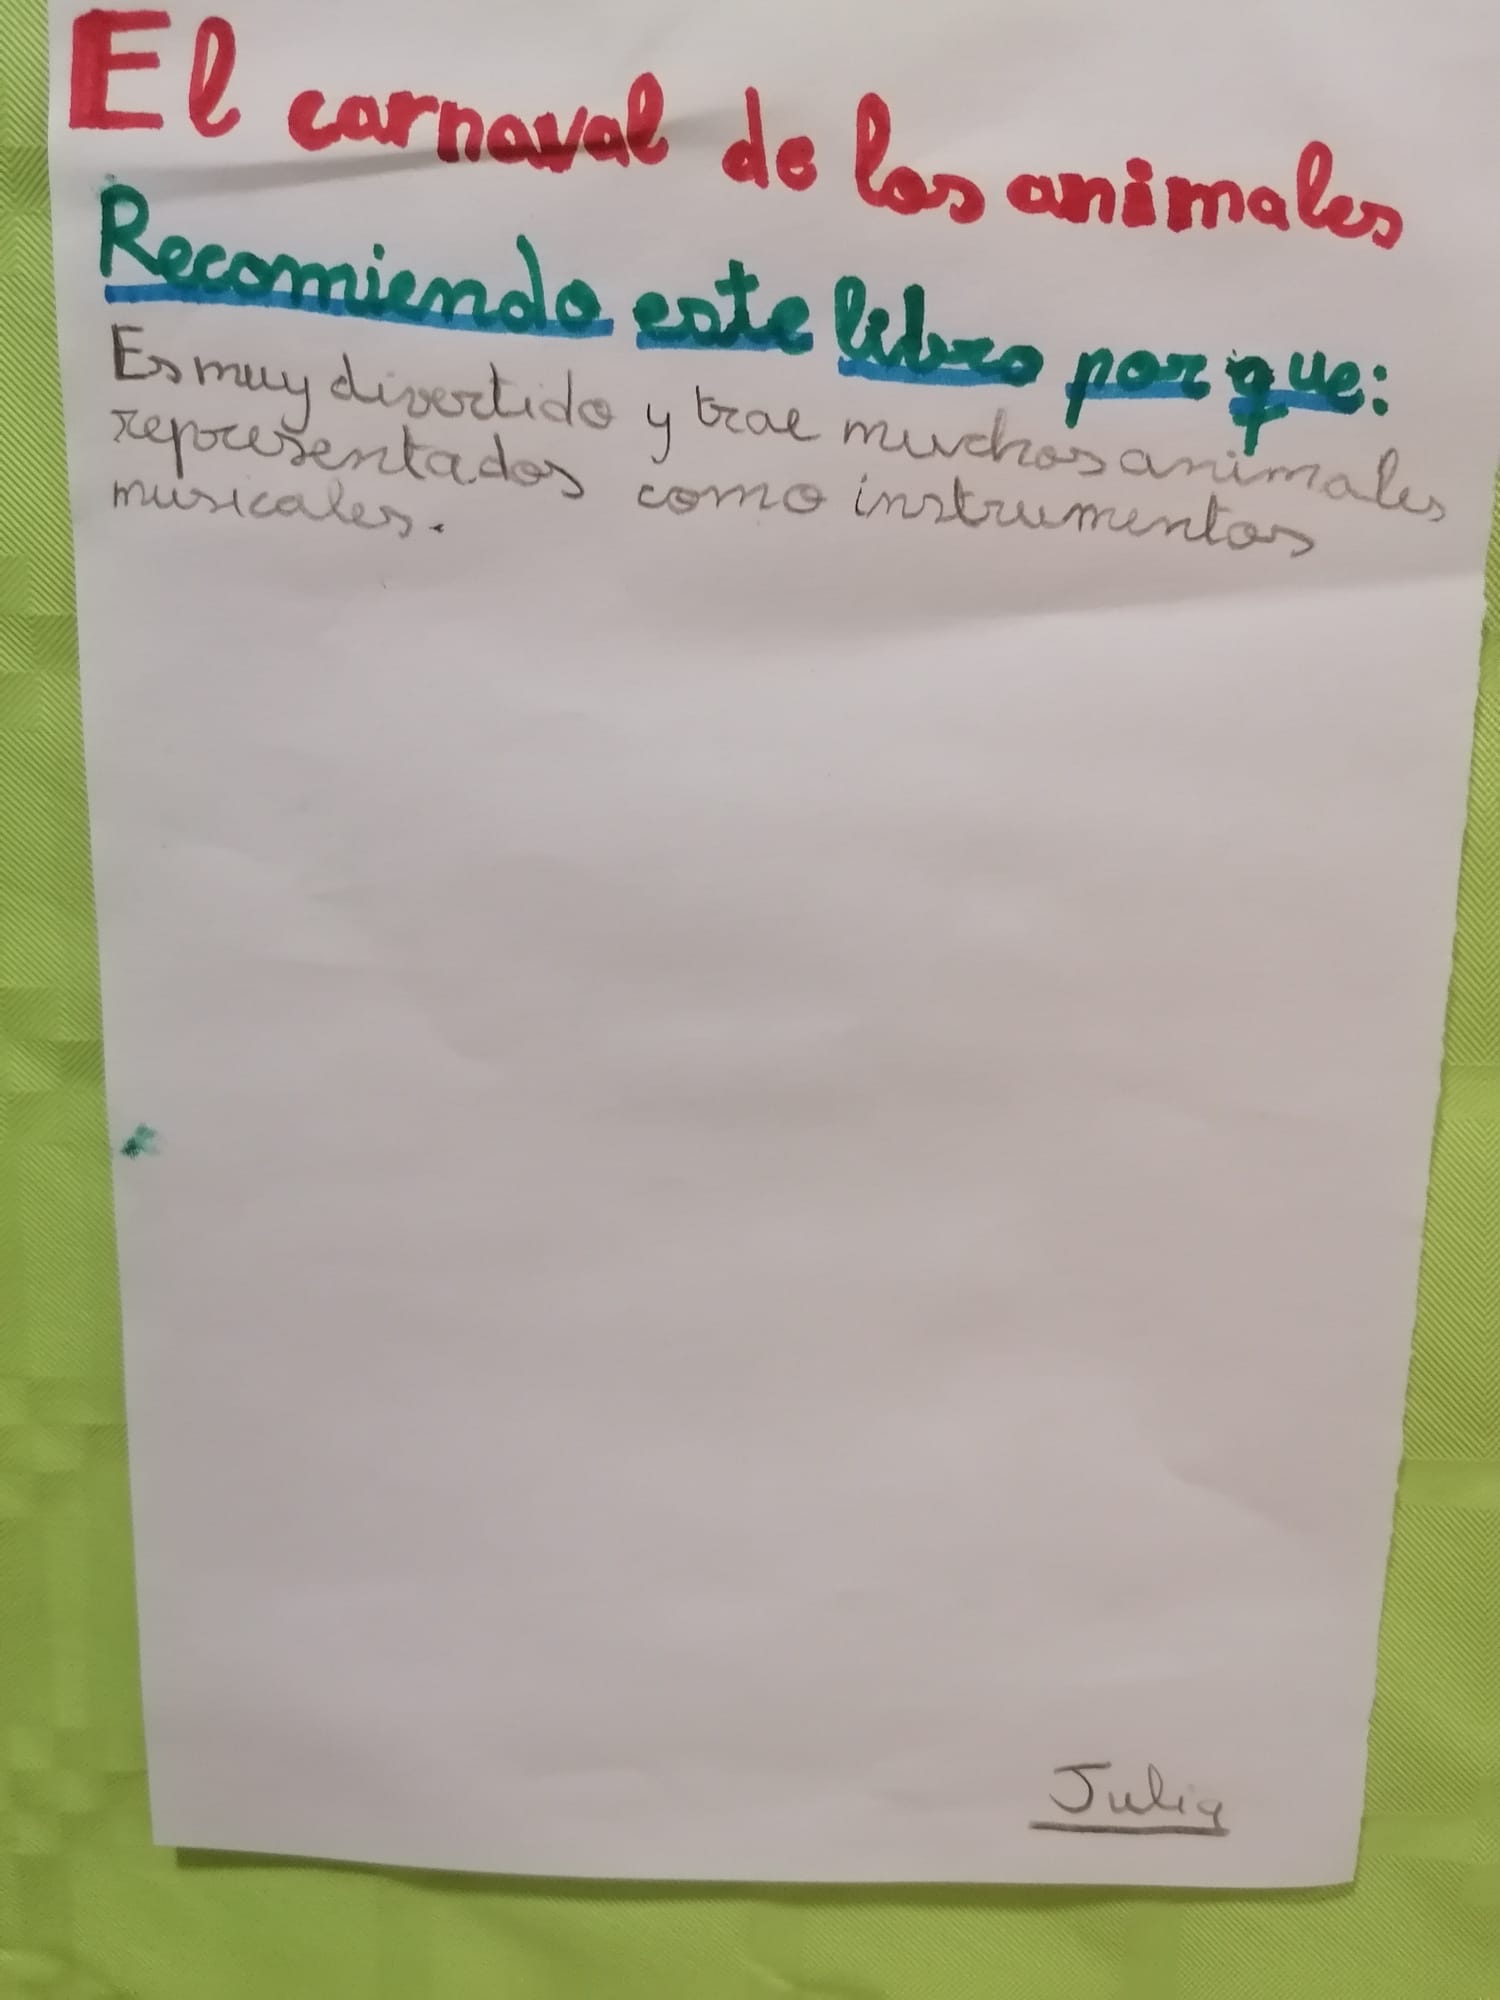 El carnaval de los animales
Recomiendo este libro porque:
Es muy divertido y trae muchos animales
representados como instrumentos
musicales.
Julia